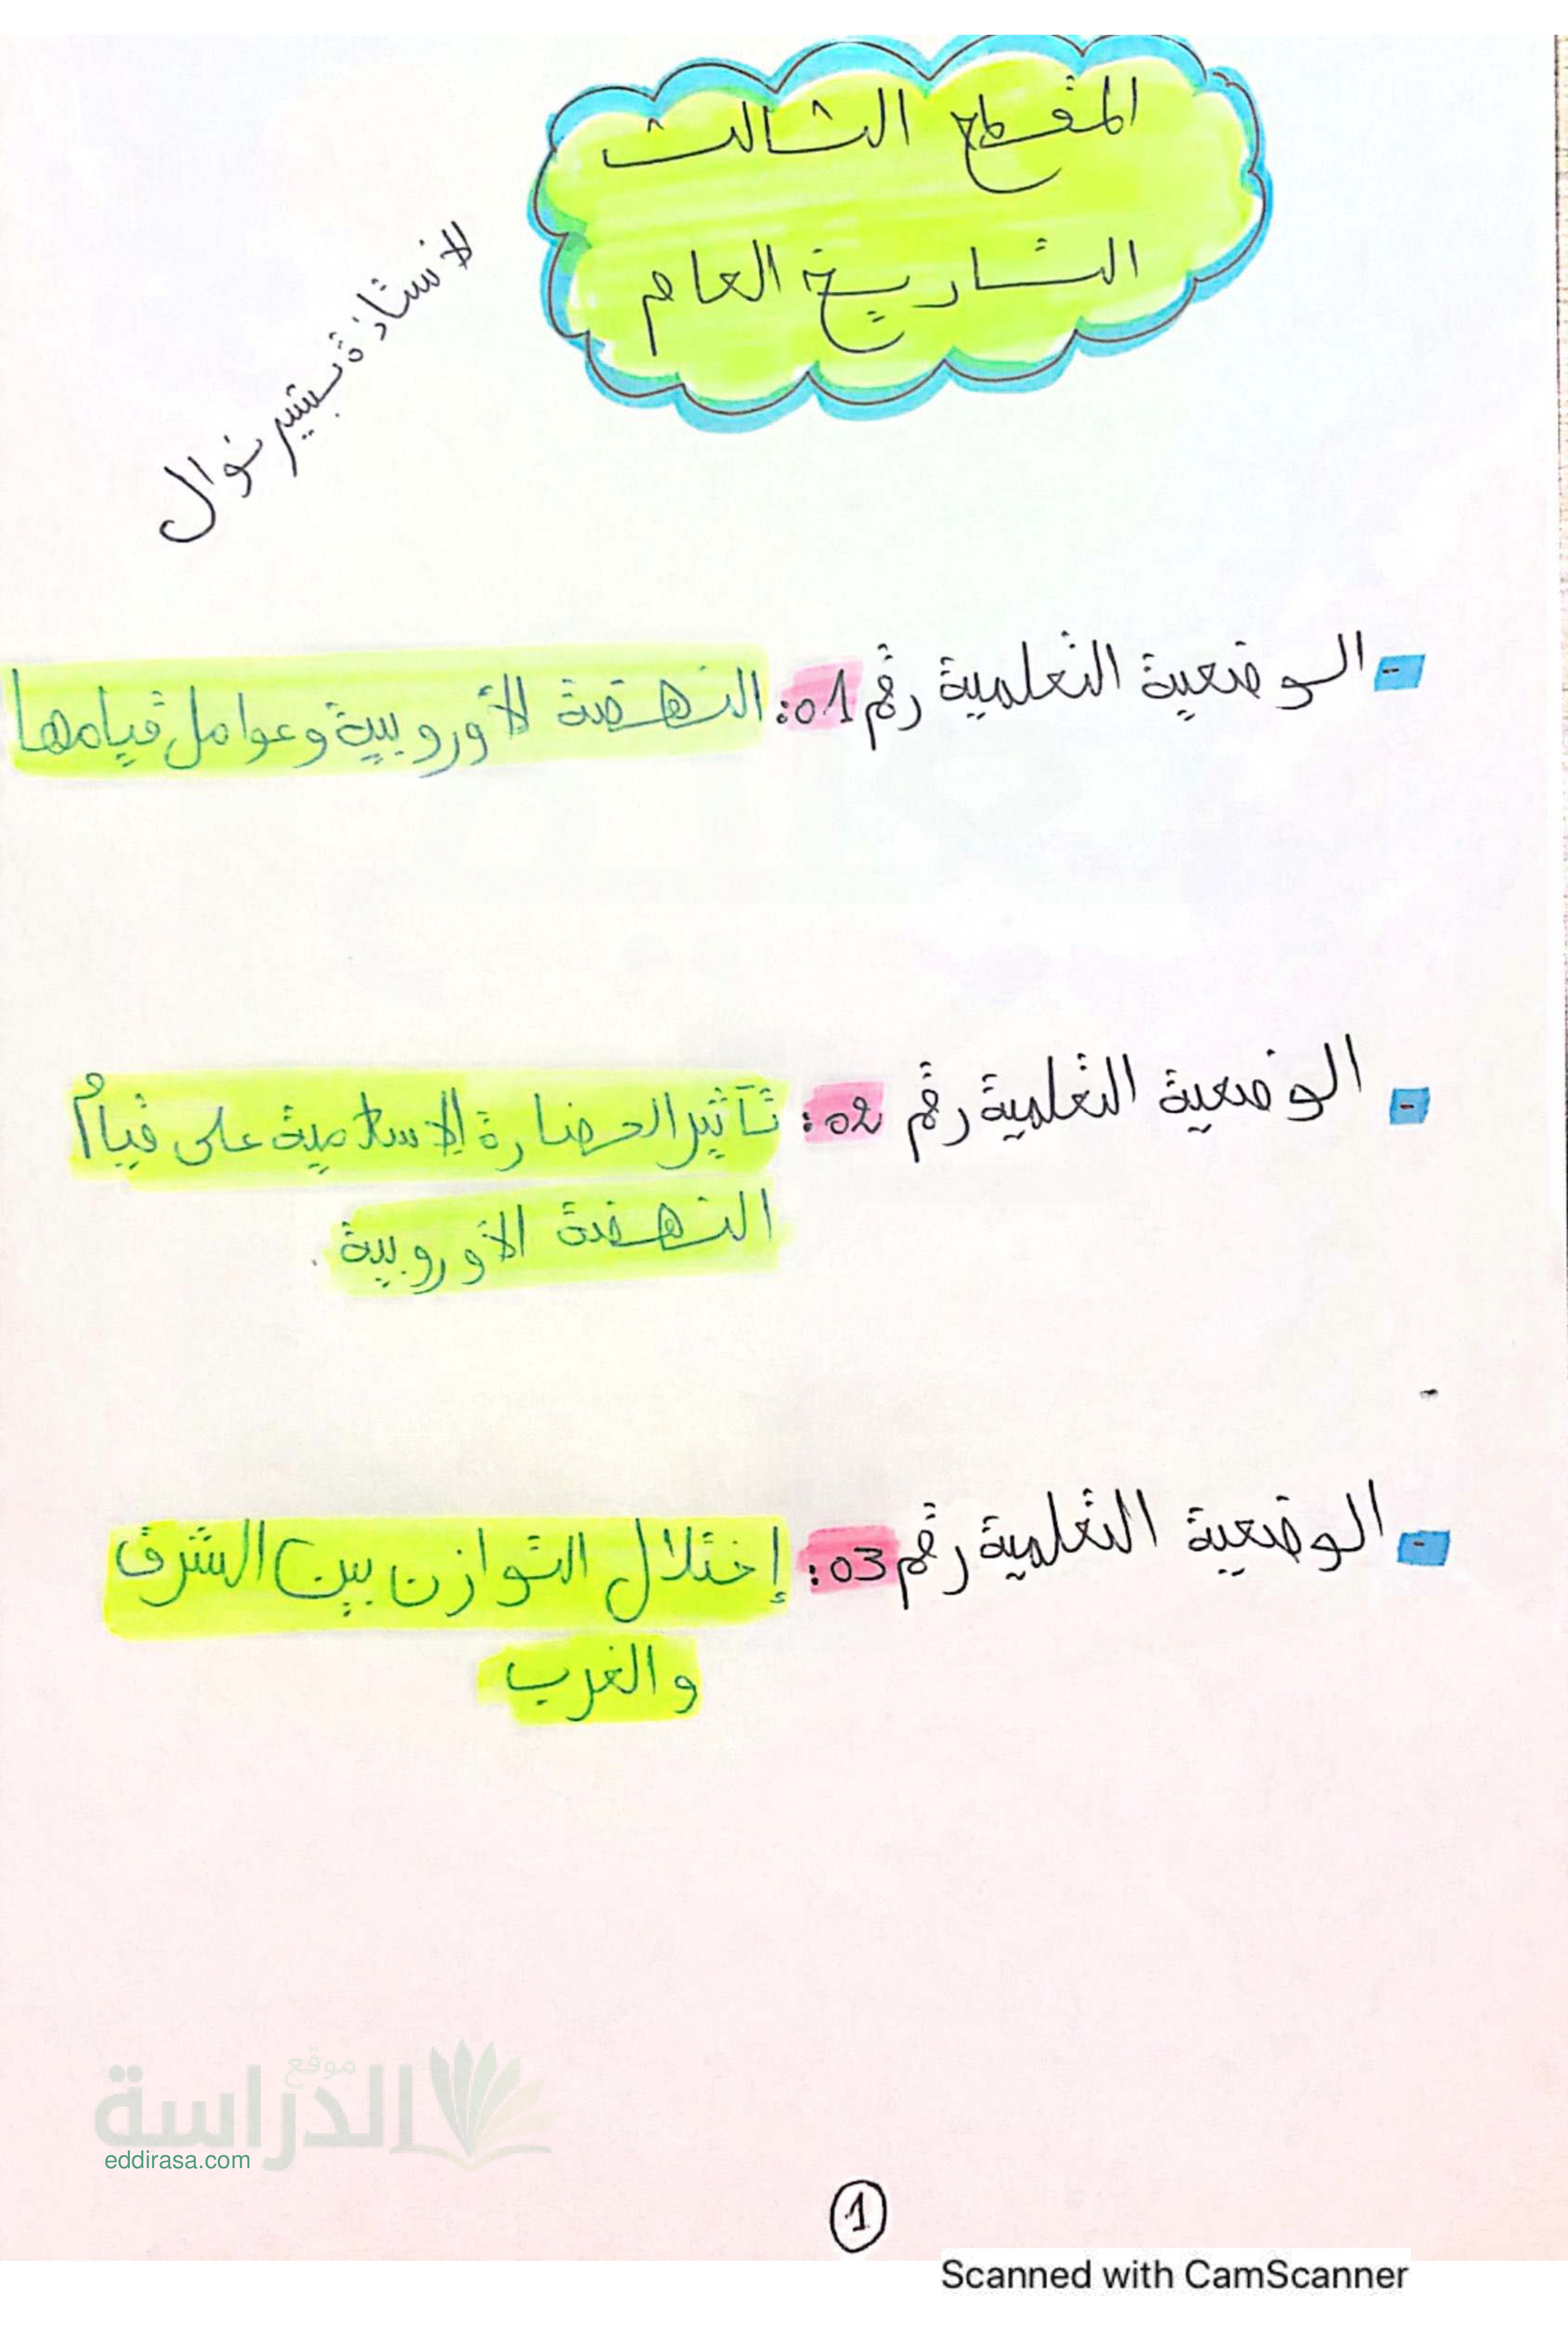 المقطع الثالث
التاريخ العام
لاستاذة بشير نوال
- الوضعية التعلمية رقم 01: النهضة الأوروبية وعوامل قيامها
- الوضعية التعلمية رقم 02: تأثير الحضارة الإسلامية على قيام
النهضة الأوروبية.
- الوضعية التعلمية رقم 03: إختلال التوازن بين الشرق
والغرب
موقع
الدراسة
eddirasa.com
1
Scanned with CamScanner